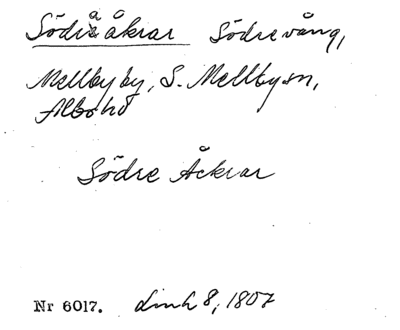 Södra åkrar Södrevång,
Mellby by, S. Mellby sn,
Albo hd
Södre Åckrar
Nr 6017. Linh 8, 1807